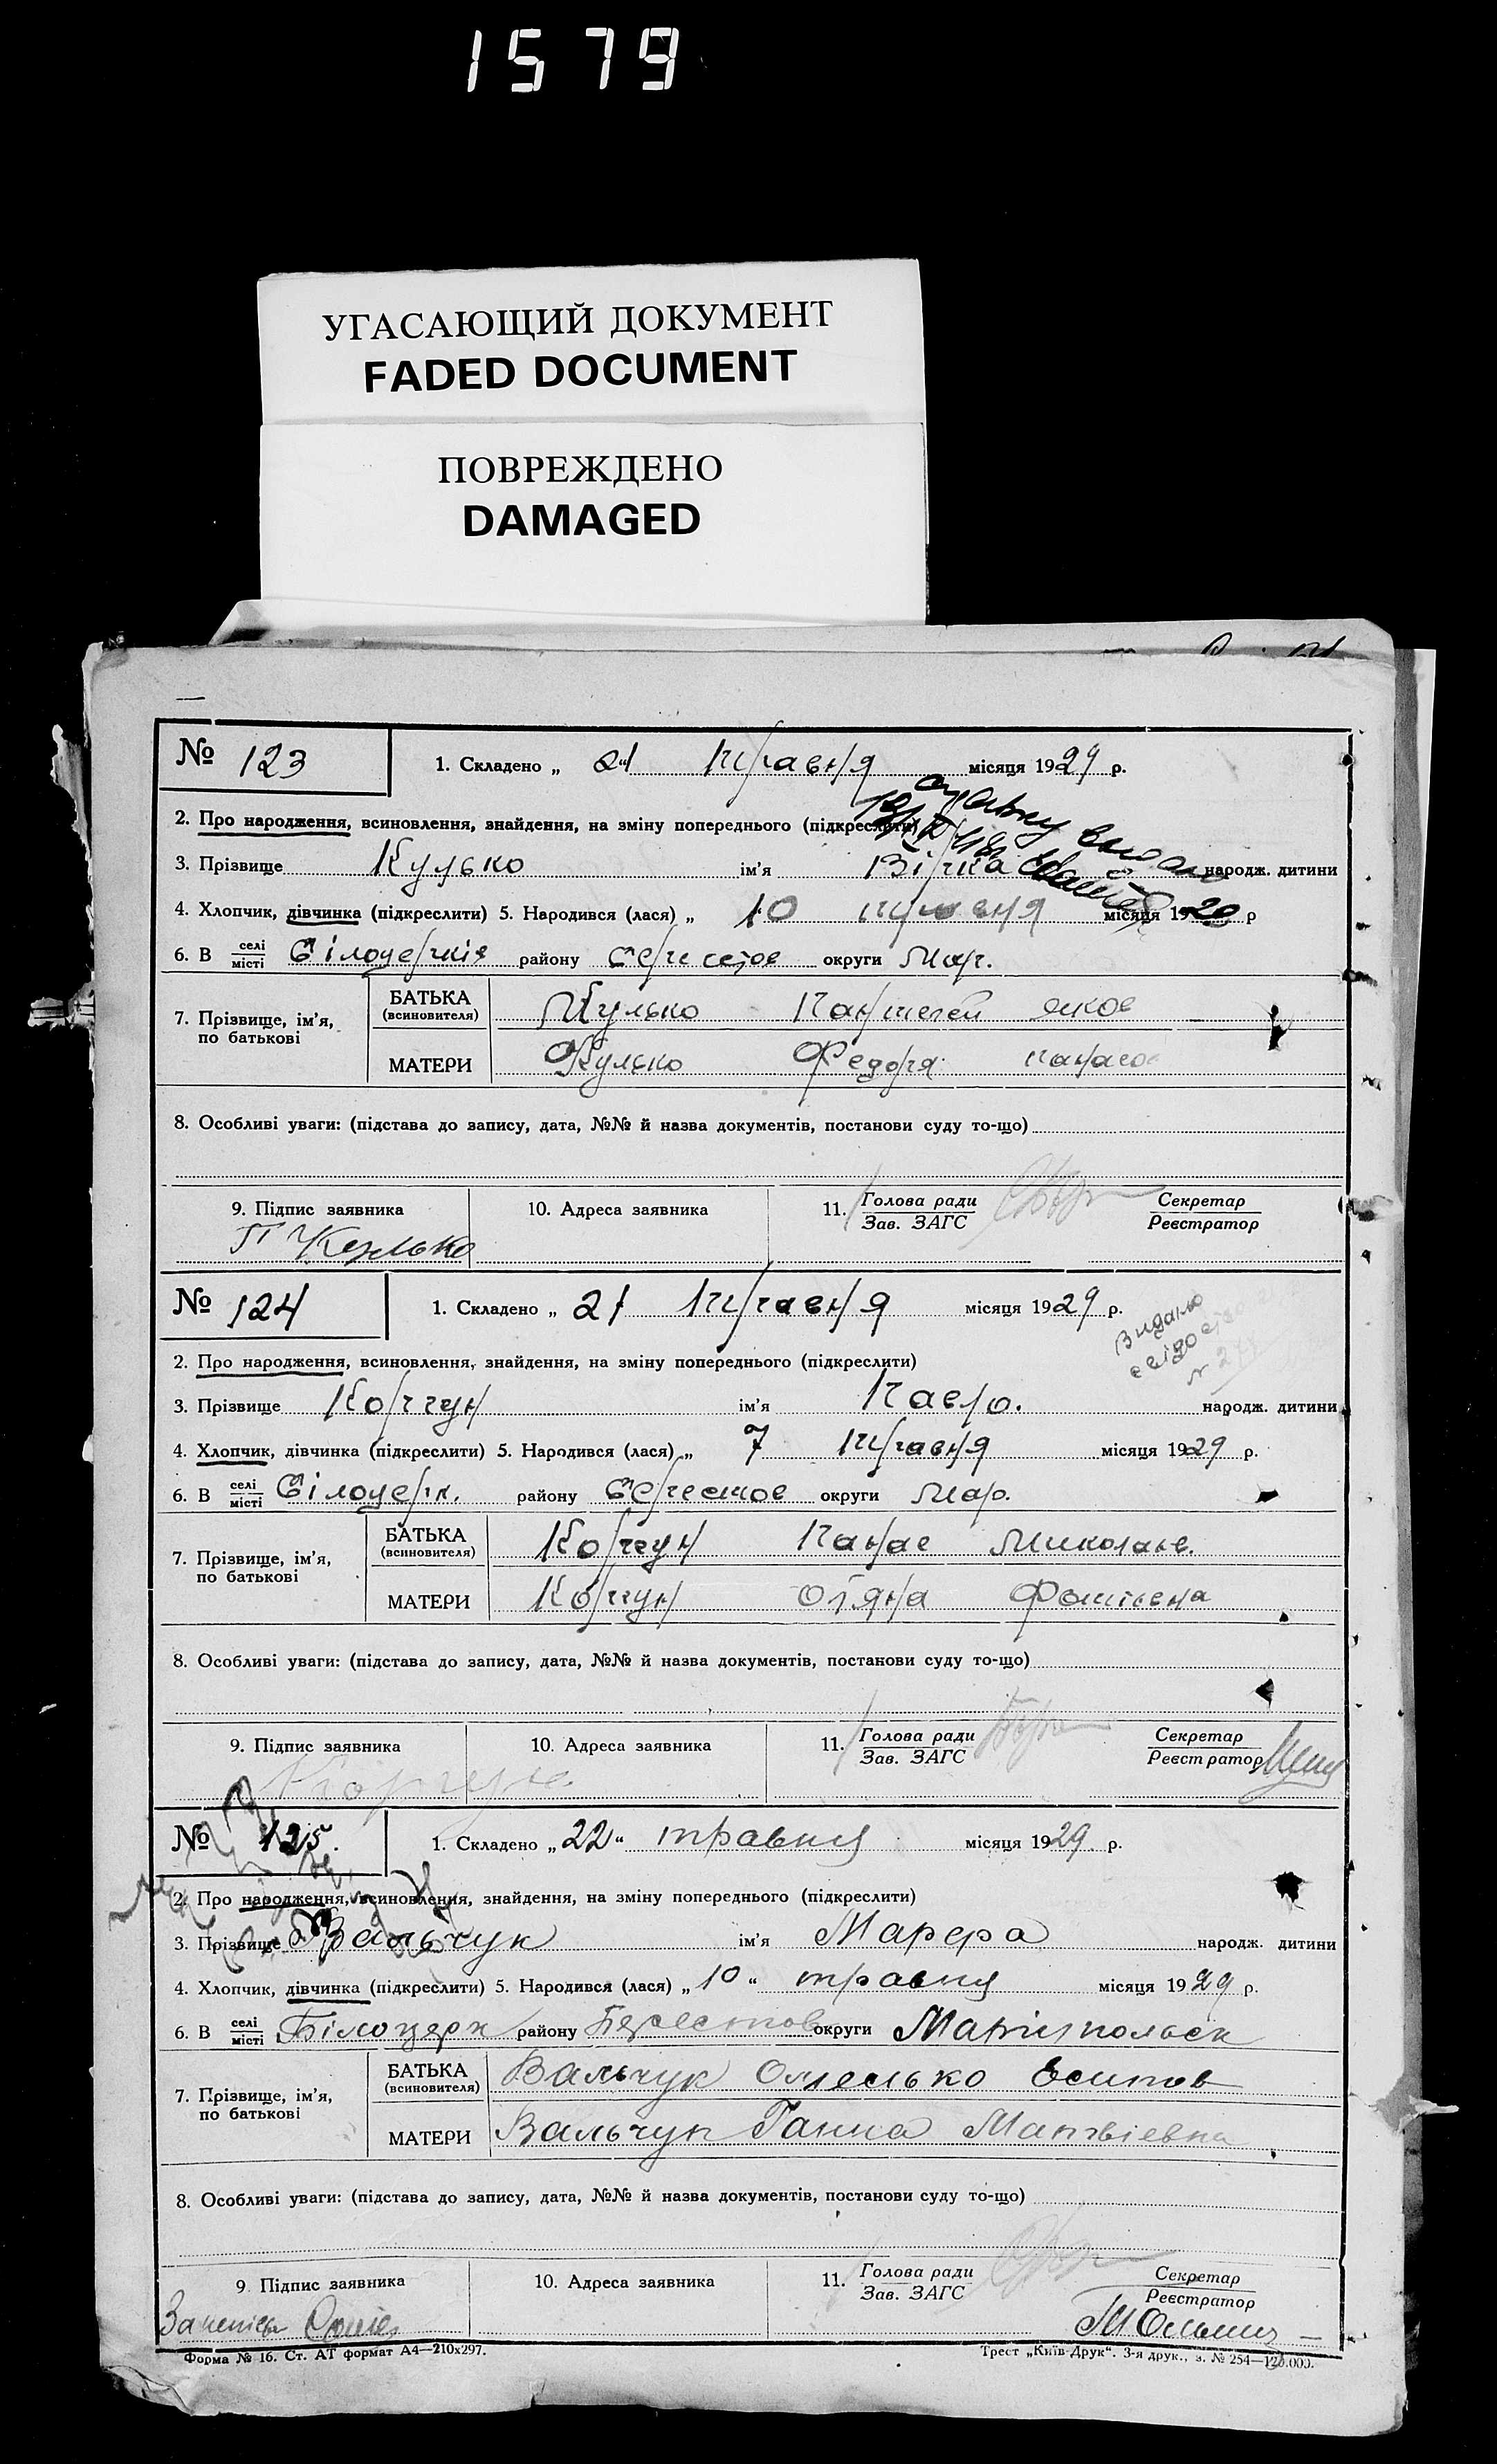 1579
УГАСАЮЩИЙ ДОКУМЕНТ
FADED DOCUMENT
ПОВРЕЖДЕНО
DAMAGED
№ 123 1. Складено „ 21 травня місяця 1929 р.
2. Про народження, всиновлення, знайдення, на зміну попереднього (підкреслити)
3. Прізвище Кулько ім'я Вірка народж. дитини
4. Хлопчик, дівчинка (підкреслити) 5. Народився (лася) „ 10 травня місяця 1929 р
6. В селі місті Білоцерків району Берестов округи Мар.
7. Прізвище, ім'я, по батькові БАТЬКА (всиновителя) Кулько Пантелей Яков
МАТЕРИ Кулько Федора Панасов
8. Особливі уваги: (підстава до запису, дата, №№ й назва документів, постанови суду то-що)
9. Підпис заявника 10. Адреса заявника 11. Голова ради Зав. ЗАГС Секретар Реєстратор
П Кулько
№ 124 1. Складено „ 21 травня місяця 1929 р.
Видано
свідо
2. Про народження, всиновлення, знайдення, на зміну попереднього (підкреслити)
3. Прізвище Корчун ім'я Павло. народж. дитини
4. Хлопчик, дівчинка (підкреслити) 5. Народився (лася) „ 7 травня місяця 1929 р.
6. В селі місті Білоцерк. району Берестов округи Мар.
7. Прізвище, ім'я, по батькові БАТЬКА (всиновителя) Корчун Панас Миколаев.
МАТЕРИ Корчун Оляна Фотіевна
8. Особливі уваги: (підстава до запису, дата, №№ й назва документів, постанови суду то-що)
9. Підпис заявника 10. Адреса заявника 11. Голова ради Зав. ЗАГС Секретар Реєстратор
Корчун
№ 125. 1. Складено „ 22 “ травня місяця 1929 р.
2. Про народження, всиновлення, знайдення, на зміну попереднього (підкреслити)
3. Прізвище Вальчук ім'я Марфа народж. дитини
4. Хлопчик, дівчинка (підкреслити) 5. Народився (лася) „ 10 “ травня місяця 1929 р.
6. В селі місті Білоцерк району Берестов округи Маріупольск
7. Прізвище, ім'я, по батькові БАТЬКА (всиновителя) Вальчук Омелько Есипов
МАТЕРИ Вальчук Ганна Матвіевна
8. Особливі уваги: (підстава до запису, дата, №№ й назва документів, постанови суду то-що)
9. Підпис заявника 10. Адреса заявника 11. Голова ради Зав. ЗАГС Секретар Реєстратор
Форма № 16. Ст. АТ формат А4—210x297. Трест „Київ-Друк“. 3-я друк., з. № 254—120.000.